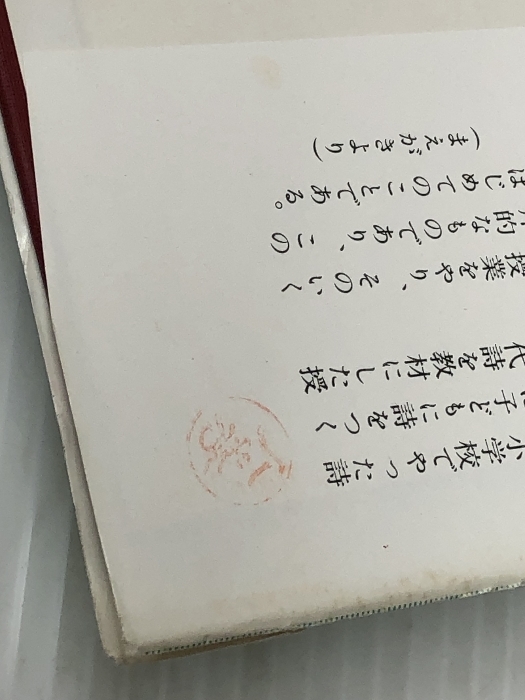 小学校でやった詩
に子どもに詩をつく
代詩を教材にした授
授業をやり、そのいく
的なものであり、この
はじめてのことである。
(まえがきより)